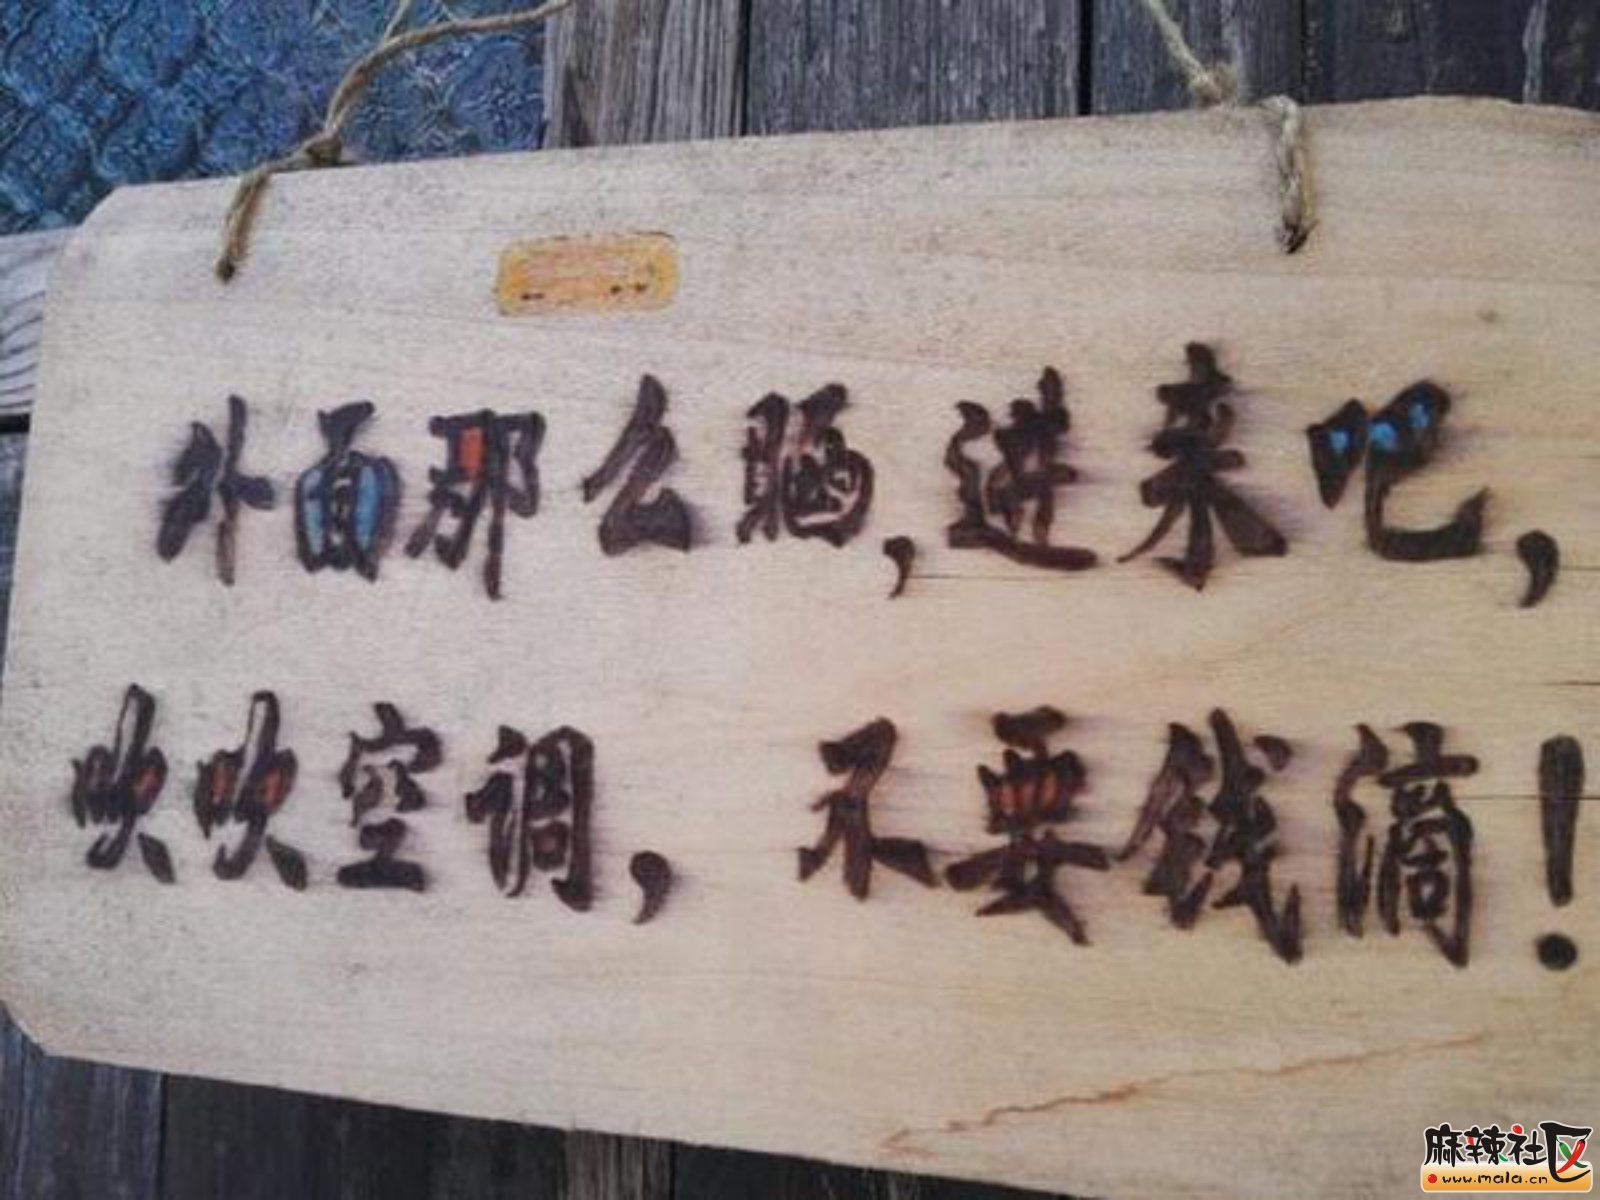 外面那么晒,进来吧,
吹吹空调, 不要钱滴!
麻辣社区
www.mala.cn